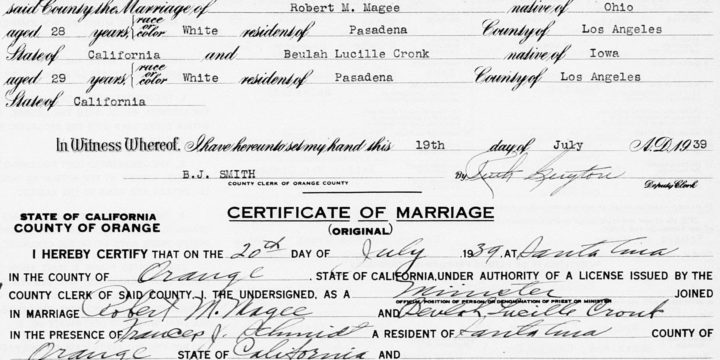 said County, the Marriage of Robert M. Magee native of Ohio
aged 28 years, race or color White resident of Pasadena County of Los Angeles
State of California and Beulah Lucille Cronk native of Iowa
aged 29 years, race or color White resident of Pasadena County of Los Angeles
State of California
In Witness Whereof, I have hereunto set my hand this 19th day of July A.D. 1939
B.J. SMITH By Ruth
COUNTY CLERK OF ORANGE COUNTY Deputy Clerk
STATE OF CALIFORNIA
COUNTY OF ORANGE
CERTIFICATE OF MARRIAGE
(ORIGINAL)
I HEREBY CERTIFY THAT ON THE 20th DAY OF July 1939, AT Santa Ana
IN THE COUNTY OF Orange, STATE OF CALIFORNIA, UNDER AUTHORITY OF A LICENSE ISSUED BY THE
COUNTY CLERK OF SAID COUNTY, I, THE UNDERSIGNED, AS A Minister JOINED
OFFICIAL POSITION OF PERSON, OR DENOMINATION OF PRIEST OR MINISTER
IN MARRIAGE Robert M. Magee AND Beulah Lucille Cronk
IN THE PRESENCE OF Frances J. Schmidt A RESIDENT OF Santa Ana COUNTY OF
Orange STATE OF California AND